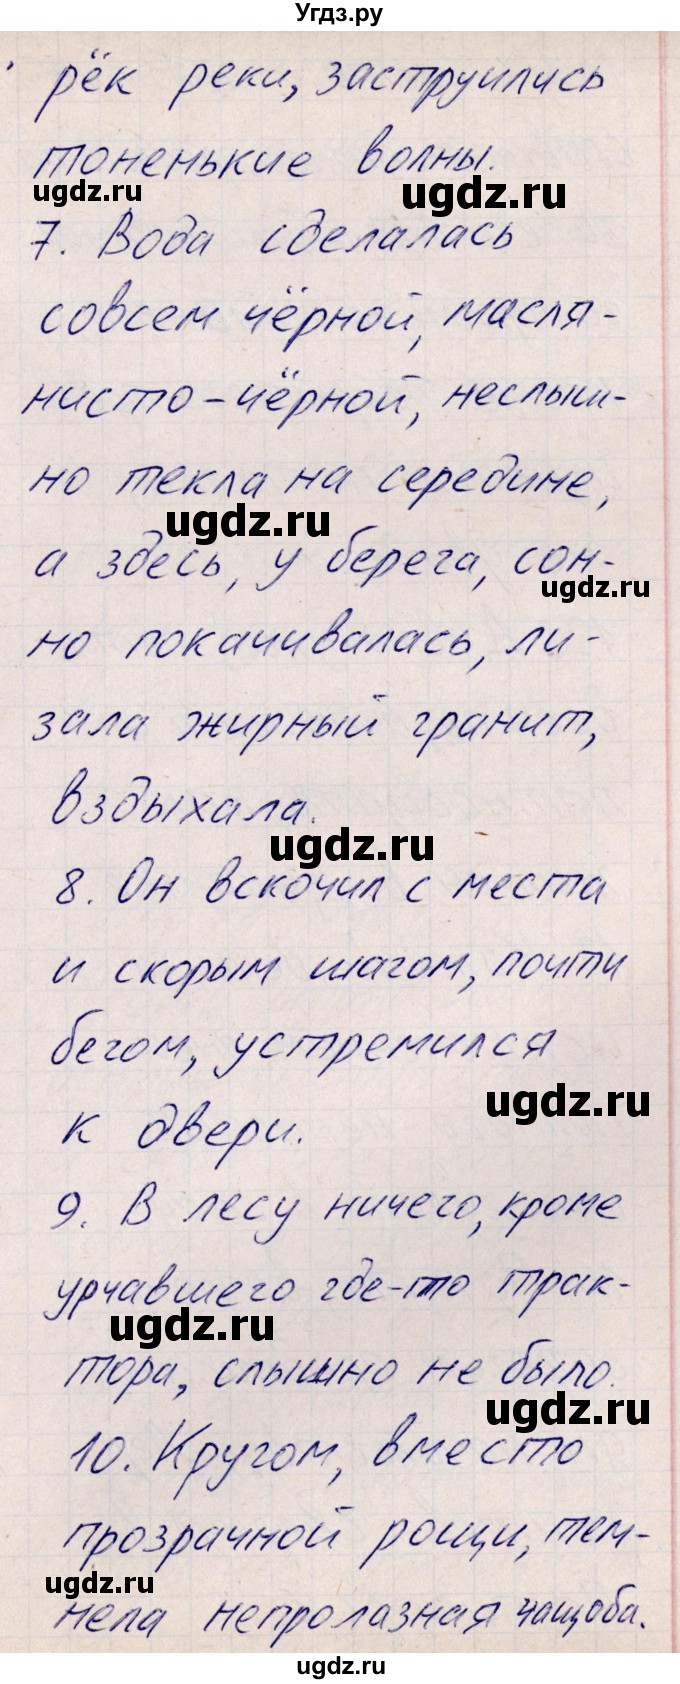 Угдз.ру
рёк реки, заструились
тоненькие волны.
ugdz.ru ugdz.ru
7. Вода сделалась
совсем чёрной, масля-
нисто-чёрной, неслыш-
но текла на середине,
ugdz.ru
а здесь, у берега, сон-
ugdz.ru
но покачивалась, ли-
зала жирный гранит,
вздыхала.
ugdz.ru
8. Он вскочил с места
и скорым шагом, почти
бегом, устремился
ugdz.ru
к двери.
9. В лесу ничего, кроме
урчавшего где-то трак-
ugdz.ru
тора, слышно не было.
ugdz.ru
10. Кругом, вместо
прозрачной рощи, тем-
ugdz.ru
нела непролазная чащоба.
ugdz.ru